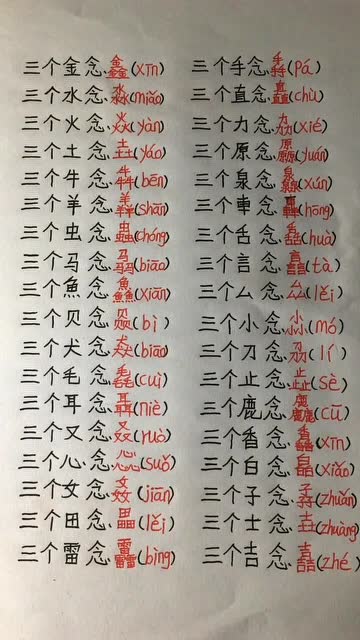 三个金念、鑫(xīn)
三个水念、淼(miǎo)
三个火念、焱(yàn)
三个土念、垚(yáo)
三个牛念、犇(bēn)
三个羊念、羴(shān)
三个虫念、蟲(chóng)
三个马念、骉(biāo)
三个魚念、鱻(xiān)
三个贝念、赑(bì)
三个犬念、猋(biāo)
三个毛念、毳(cuì)
三个耳念、聶(niè)
三个又念、叒(ruò)
三个心念、惢(suǒ)
三个女念、姦(jiān)
三个田念、畾(lěi)
三个雷念、靐(bìng)
三个手念、掱(pá)
三个直念、矗(chù)
三个力念、劦(xié)
三个原念、厵(yuán)
三个泉念、灥(xún)
三个車念、轟(hōng)
三个舌念、舙(huà)
三个言念、譶(tà)
三个厶念、厽(lěi)
三个小念、尛(mó)
三个刀念、刕(lí)
三个止念、歮(sè)
三个鹿念、麤(cū)
三个香念、馫(xīn)
三个白念、皛(xiǎo)
三个子念、孨(zhuǎn)
三个士念、壵(zhuàng)
三个吉念、嚞(zhé)